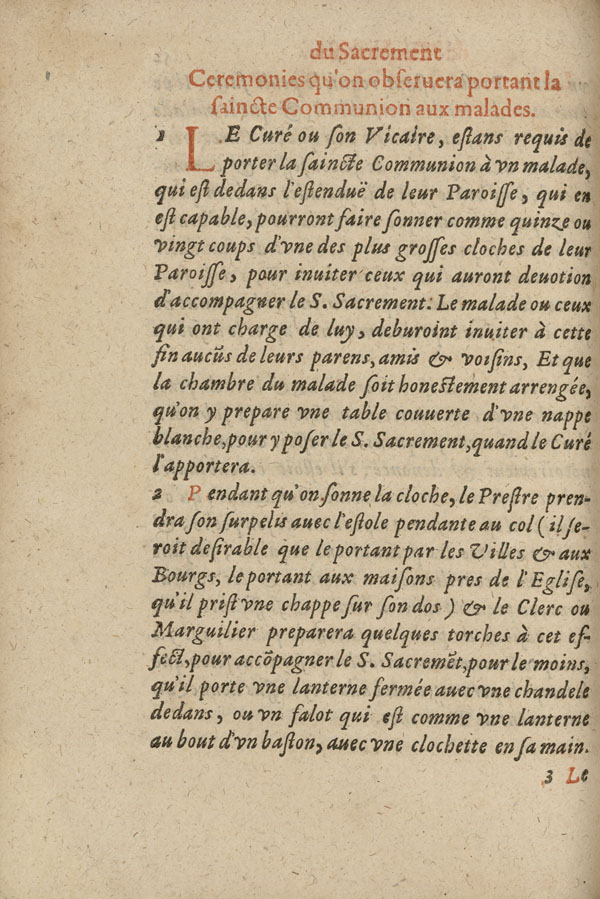 du Sacrement
Ceremonies qu'on obſeruera portant la
ſaincte Communion aux malades.
1 LE Curé ou ſon Vicaire, eſtans requis de
porter la ſaincte Communion à vn malade,
qui eſt dedans l'eſtenduë de leur Paroiſſe, qui en
eſt capable, pourront faire ſonner comme quinze ou
vingt coups d'vne des plus groſſes cloches de leur
Paroiſſe, pour inuiter ceux qui auront deuotion
d'accompagner le S. Sacrement: Le malade ou ceux
qui ont charge de luy, deburoint inuiter à cette
fin aucũs de leurs parens, amis & voiſins, Et que
la chambre du malade ſoit honeſtement arrengée,
qu'on y prepare vne table couuerte d'vne nappe
blanche, pour y poſer le S. Sacrement, quand le Curé
l'apportera.
2 Pendant qu'on ſonne la cloche, le Preſtre pren-
dra ſon ſurpelis auec l'eſtole pendante au col (il ſe-
roit deſirable que le portant par les Villes & aux
Bourgs, le portant aux maiſons pres de l'Egliſe,
qu'il priſt vne chappe ſur ſon dos) & le Clerc ou
Marguilier preparera quelques torches à cet eſ-
fect, pour accõpagner le S. Sacremẽt, pour le moins,
qu'il porte vne lanterne fermée auec vne chandele
dedans, ou vn falot qui eſt comme vne lanterne
au bout d'vn baſton, auec vne clochette en ſa main.
3 Le